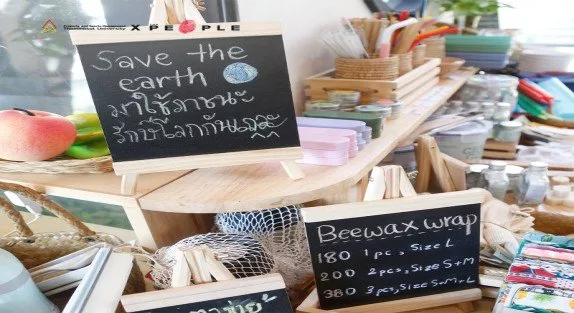 Thammasat University X PEOPLE
Save the
earth
มาใช้ภาชนะ
รักษ์โลกกันเถอะ
Beewax wrap
180 1 pc, Size L
200 2 pcs, Size S+M
380 3 pcs, Size S+M+L